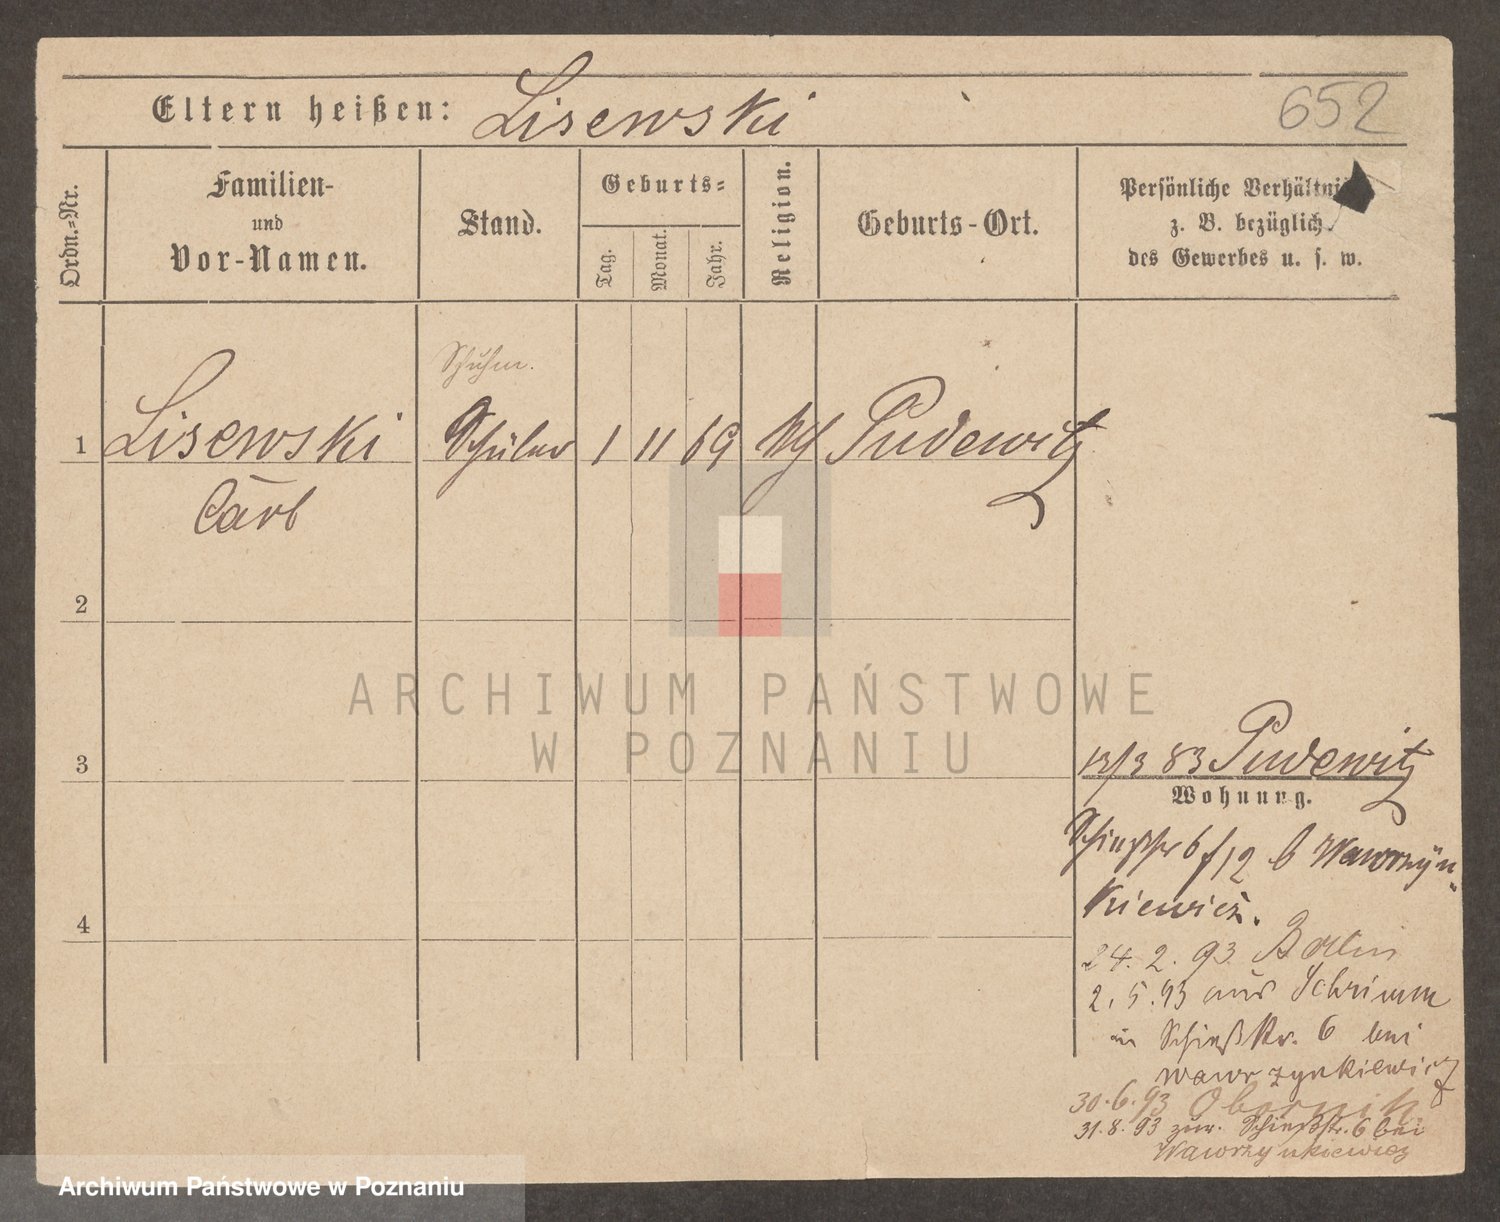 Eltern heißen: Lisewski
652
Ordn.=Nr.
Familien-
und
Vor-Namen.
Stand.
Geburts=
Tag.
Monat.
Jahr.
Religion.
Geburts-Ort.
Persönliche Verhältni
z. B. bezüglich
des Gewerbes u. s. w.
Schuhm.
1 Lisewski Schüler 1 11 69 Pudewitz
2
3
4
13/3 83 Pudewitz
Wohnung.
6 f 12 b Wawrzyn-
kiewicz.
24. 2. 93 Berlin
2. 5. 93 aus Schrimm
in Schießstr. 6 bei
Wawrzynkiewicz
30.6.93 Obornik
31.8.93 zur. Schießstr. 6 bei
Wawrzynkiewicz
ARCHIWUM PAŃSTWOWE
W POZNANIU
Archiwum Państwowe w Poznaniu